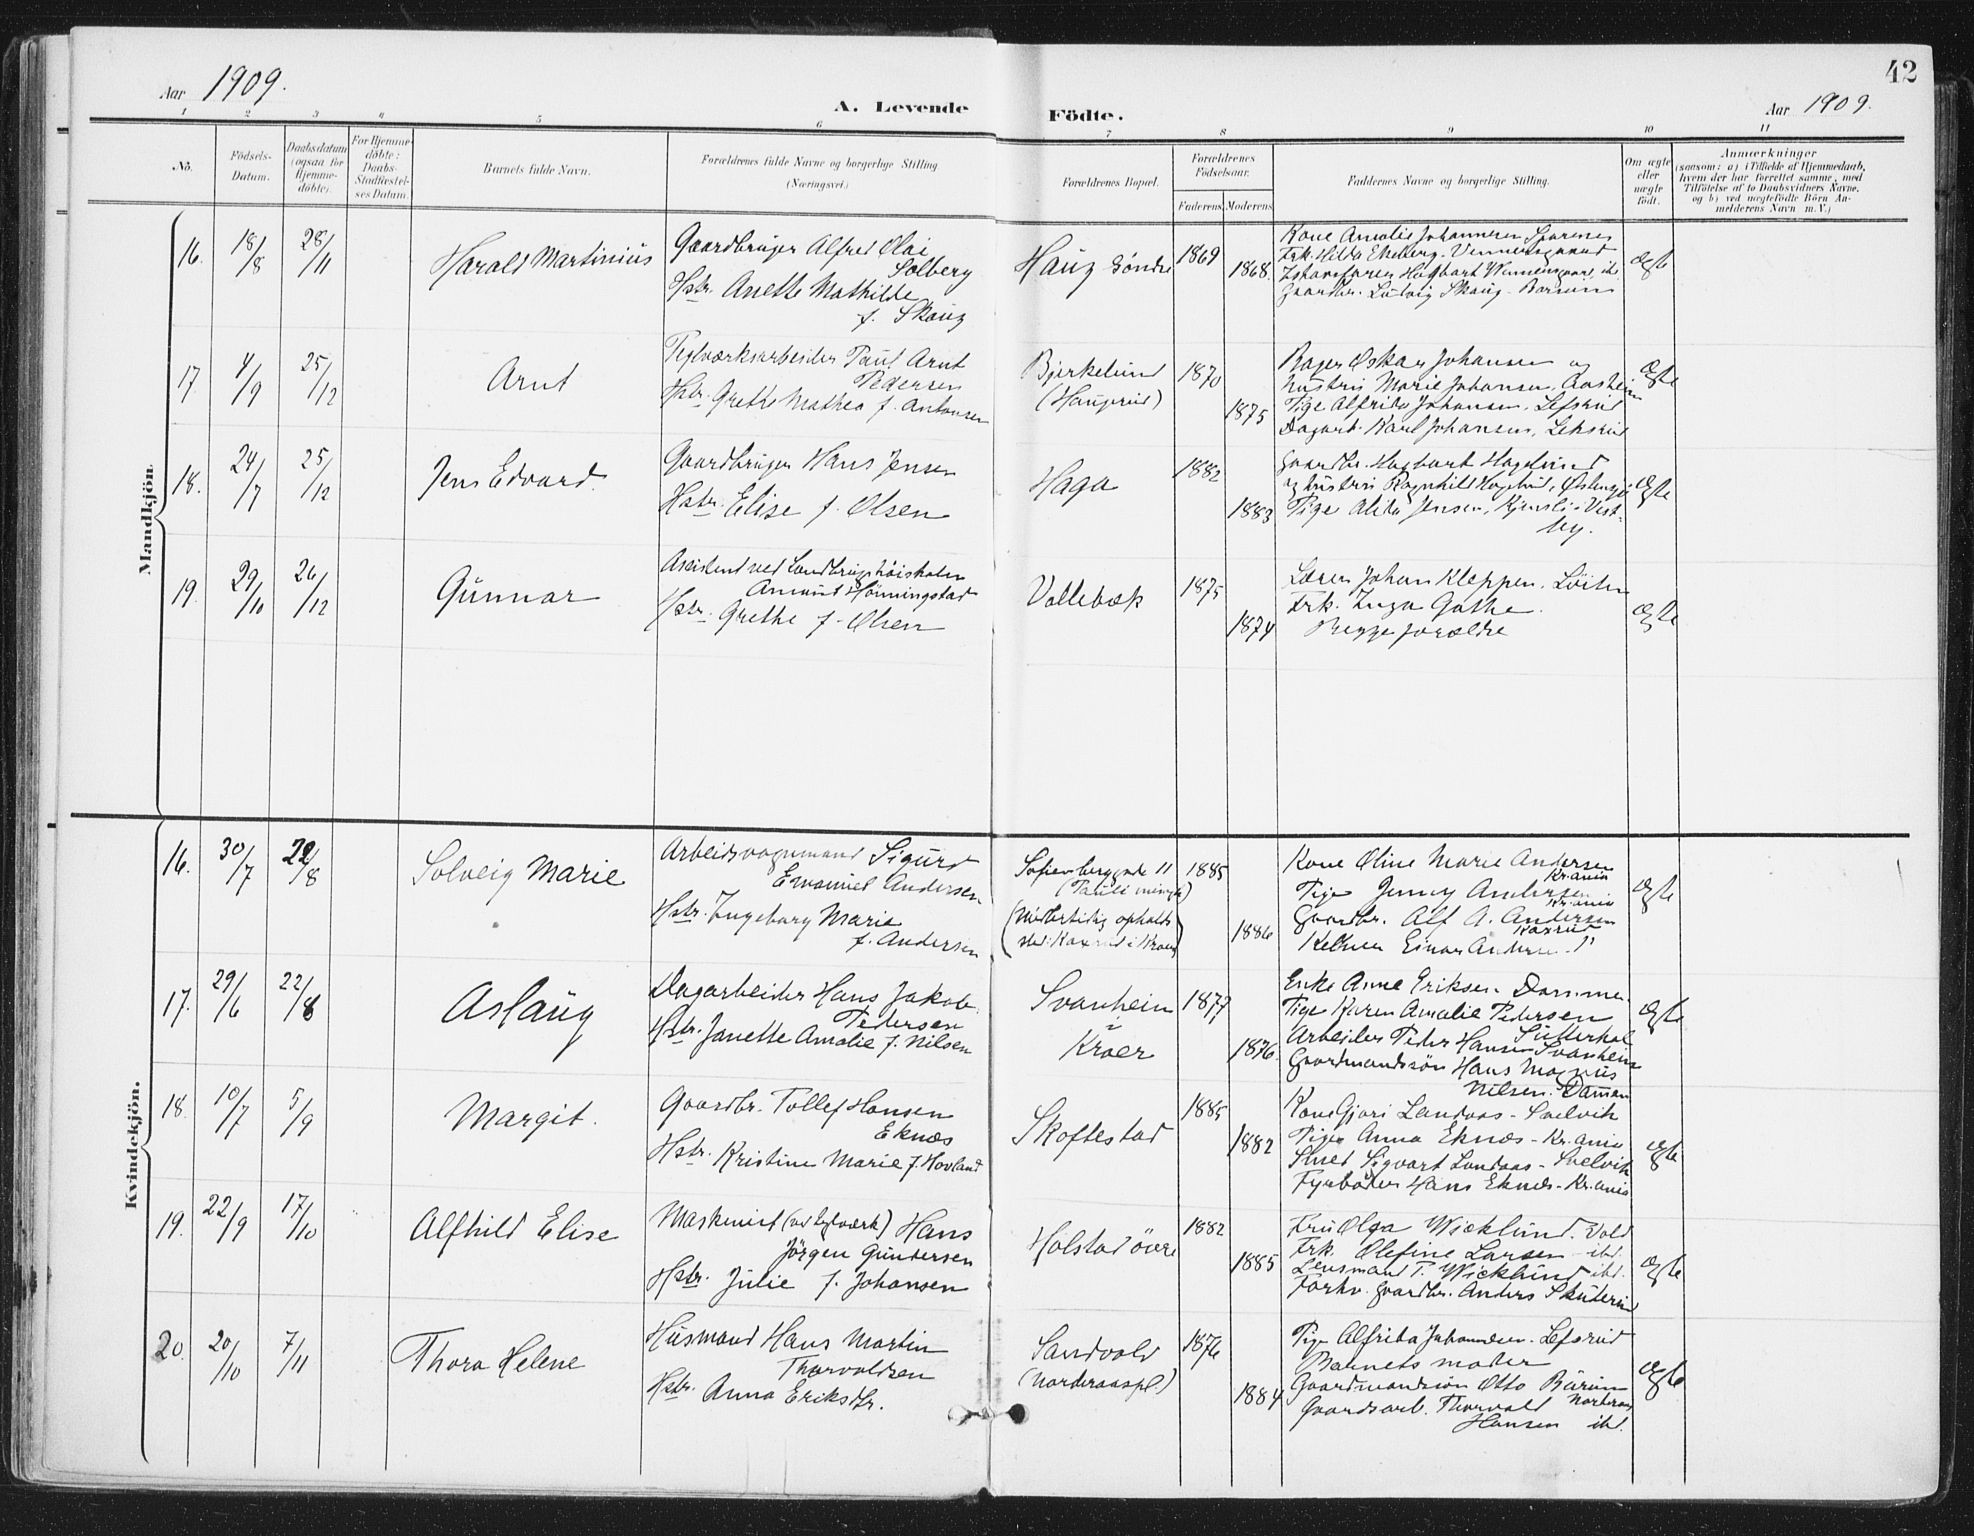 42
Aar 1909.
A. Levende Födte.
Aar 1909.
1 2 3 4 5 6 7 8 9 10 11
No.
Födsels-Datum.
Daabsdatum (ogsaa for Hjemmedöbte).
For Hjemmedöbte: Daabs-Stadfæstelses Datum.
Barnets fulde Navn.
Forældrenes fulde Navne og borgerlige Stilling.
(Næringsvei.)
Forældrenes Bopæl.
Forældrenes Födselsaar.
Faderens. Moderens.
Faddernes Navne og borgerlige Stilling.
Om ægte eller uægte födt.
Anmærkninger
(saasom: a) i Tilfælde af Hjemmedaab, hvem der har forrettet samme, med Tilföielse af to Daabsvidners Navne, og b) ved uægtefödte Börn Anmelderens Navn m.V.)
Mandkjön.
16. 18/8 28/11 Harald Martinius
Gaardbruger Alfred Olai
Solberg
Hstr. Anette Mathilde
f. Skaug
Haug söndre 1869 1868.
Kone Amalie Johannesen
Frk. Hilda Ekeberg.
Gaardbr. Ludvig Skaug
Ægte
17. 4/9 25/12 Arnt
Teglværksarbeider Paul Arnt
Pedersen
Hstr. Grethe Mathea f. Antonsen
Bjerkelund
(Haugerud)
1870 1875
Bager Oskar Johansen og
hustru Marie Johansen, Aasheim
Pige Alfrida Johansen, Lefsrud
Dagarb. Karl Johansen, Lefsrud
Ægte
18. 24/7 25/12 Jens Edvard.
Gaardbruger Hans Jensen
Hstr. Elise f. Olsen
Haga 1882 1883
Gaardbr. Hagbart
og hustru Ragnhild
Pige Alida Jensen, Kjensli i Vest-
by.
Ægte
19. 29/10 26/12 Gunnar
Assistent ved Landbrugshöiskolen
Amund Hönningstad
Hstr. Grethe f. Olsen
Vollebæk 1875 1874
Lærer Johan Kleppen, Löiten
Frk. Inga Gathe.
Begge forældre
Ægte
Kvindekjön.
16. 30/7 22/8 Solveig Marie
Arbeidsvognmand Sigurd
Emanuel Andersen
Hstr. Ingeborg Marie
f. Andersen
Sofienberggade 11
(Pauli menigh)
(Midlertidig opholds
sted: Kaxrud i Kroer)
1885 1886
Kone Oline Marie Andersen
Kr.ania
Pige Jenny Andersen
Kr.ania
Gaardbr. Alf A. Andersen
Kaxrud
Kelner Einar Andersen "
Ægte
17. 29/6 22/8 Aslaug
Dagarbeider Hans Jakob
Pedersen
Hstr. Janette Amalie f. Nilsen
Svanheim
i
Kroer
1877 1876.
Enke Anne Eriksen
Pige Karen Amalie Pedersen
Arbeider Peder Hansen Svanheim
Gaardmandssön Hans Magnus
Nilsen.
Ægte
18. 10/7 5/9 Margit.
Gaardbr. Tollef Hansen
Eknæs
Hstr. Kristine Marie f. Hovland
Skoftestad 1885 1882
Kone Gjori Landaas - Svelvik
Pige Anna Eknæs - Kr.ania
Smed Sigvart Landaas - Svelvik
Fyrböder Hans Eknæs - Kr.ania
Ægte
19. 22/9 17/10 Alfhild Elise
Maskinist (ved teglværk) Hans
Jörgen Gundersen
Hstr. Julie f. Johansen
Holstad övre 1882 1885
Fru Olga Wicklund. Vold
Frk. Olefine Larsen - ibd.
Lensmand T. Wicklund ibd.
Forhv. Gaardbr. Anders Skuterud
Ægte
20. 20/10 7/11 Thora Helene
Husmand Hans Martin
Thorvaldsen
Hstr. Anna Eriksdtr.
Sandvold
(Norderaaspl.)
1876 1884
Pige Alfrida Johannesen. Lefsrud
Barnets moder
Gaardmandssön Otto Burum
Norderaas
Gaardsarb. Thorvald
Hansen ibd.
Ægte